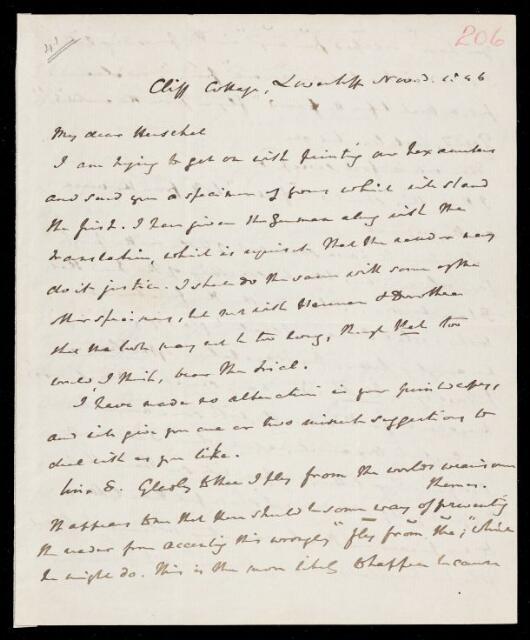 206
Cliff Cottage, Lowestoft Novr. 1846
My dear Herschel
I am trying to get on with printing our Hexameters
and send you a specimen of yours which will stand
the first. I have given the German along with the
translation, which is requisite that the reader may
do it justice. I shall do the same with some of the
other specimens, but not with Herman & Dorothea
that the book may not be too long, though that too
would, I think, bear the trial.
I have made no alteration in your printed copy,
and will give you one or two minute suggestions to
deal with as you like.
line 8. Gladly to thee I fly from the worlds wearisome
themes.
It appears to me that there should be some way of preventing
the reader from accenting this wrongly "fly from the," which
he might do. This is the more likely to happen because